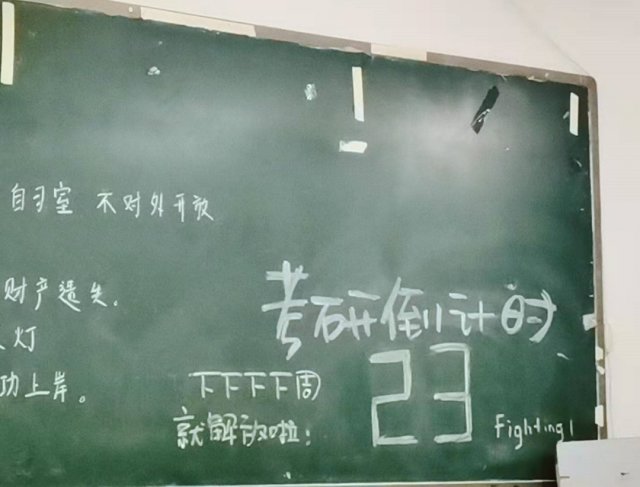 自习室 不对外开放
财产遗失。
灯
功上岸。
考研倒计时
23
下下下下周
就解放啦!
Fighting!